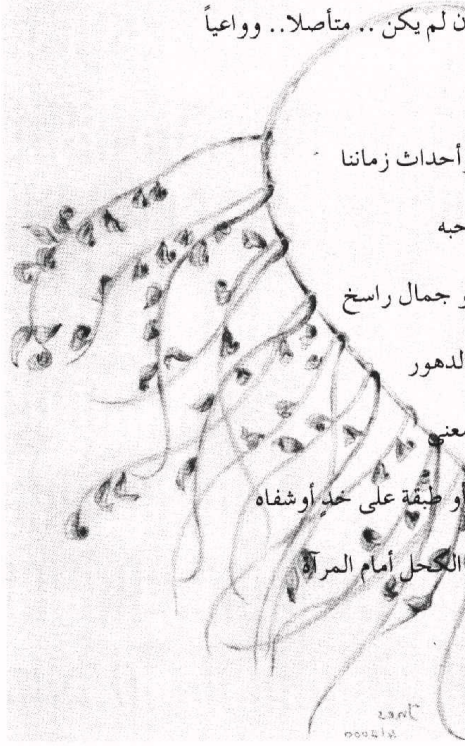 ن لم يكن .. متأصلا.. وواعياً
أحداث زماننا
حبه
جمال راسخ
لدهور
معنى
أو طبقة على خدٍ أوشفاه
الكحل أمام المرآة
Ines